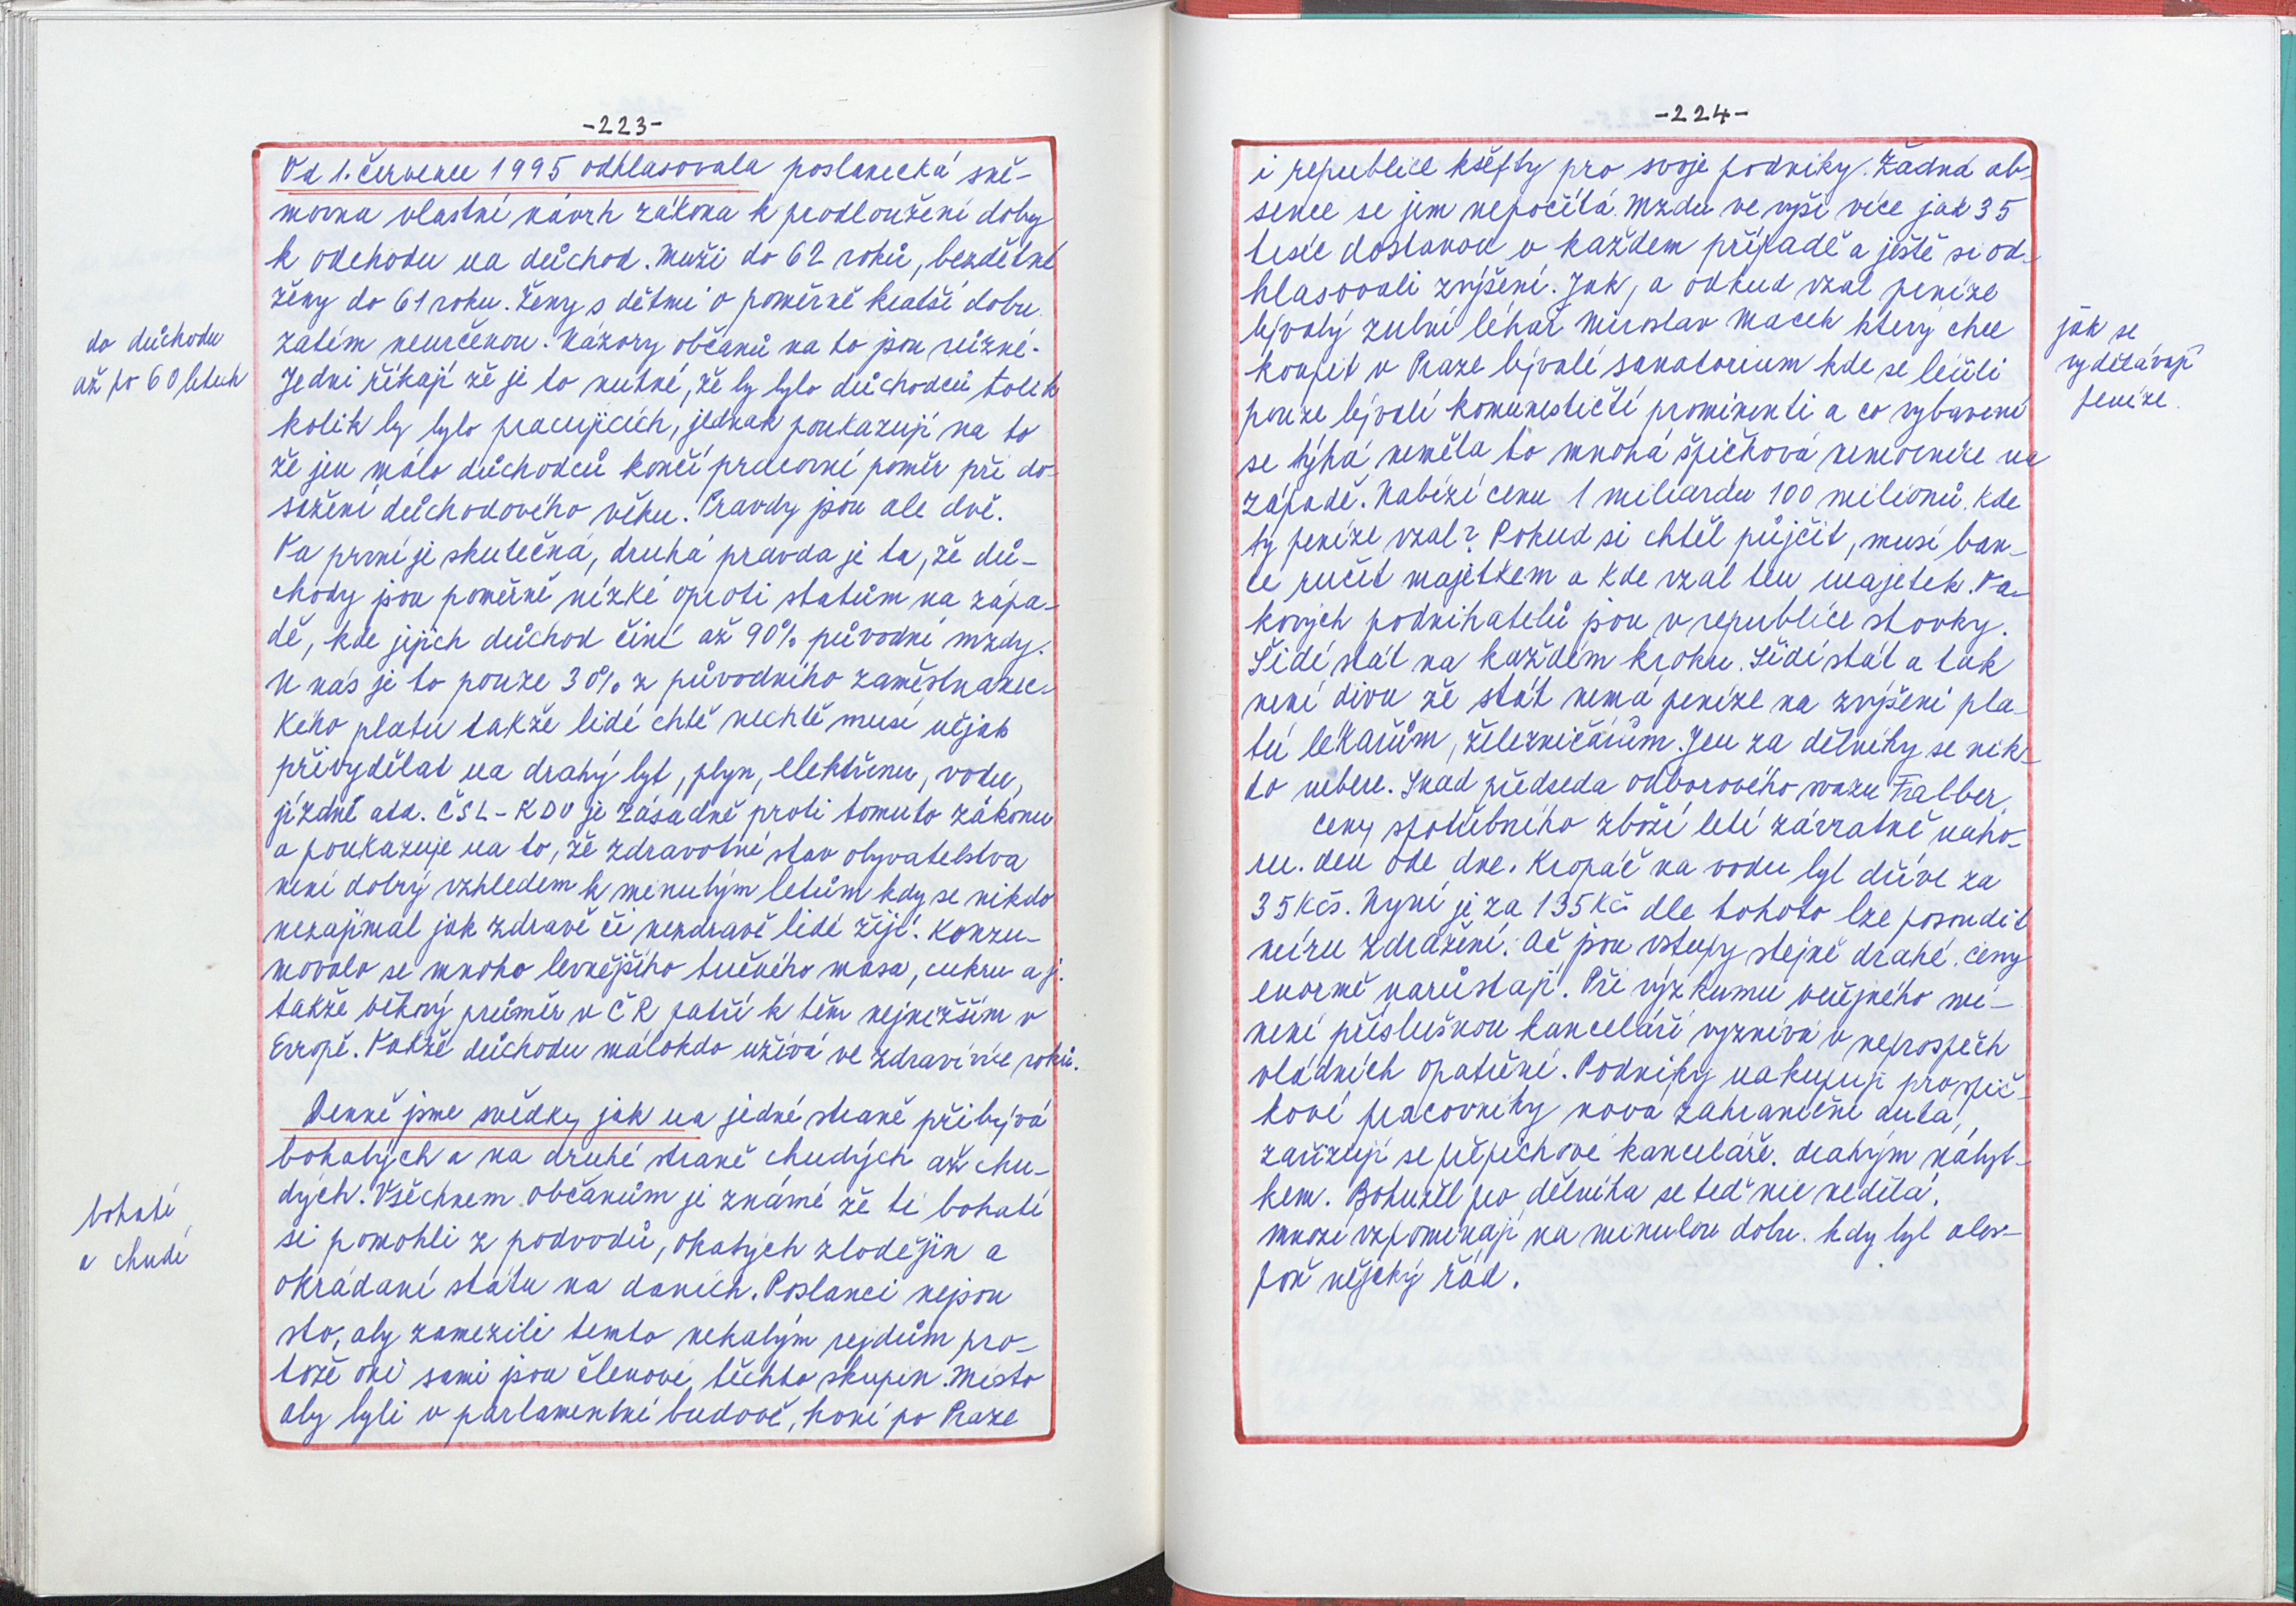 -223-
Od 1. července 1995 odhlasovala poslanecká sně-
movna vlastní návrh zákona k prodloužení doby
k odchodu na důchod. Muži do 62 roků, bezdětné
ženy do 61 roku. Ženy s dětmi o poměrně kratší dobu
do důchodu
až po 60 letech
zatím neurčenou. Názory občanů na to jsou různé.
Jedni říkají že je to nutné, že by bylo důchodců tolik
kolik by bylo pracujících, jednak poukazují na to
že jen málo důchodců končí pracovní poměr při do-
sažení důchodového věku. Pravdy jsou ale dvě.
Ta první je skutečná, druhá pravda je ta, že dů-
chody jsou poměrně nízké oproti statům na zápa-
dě, kde jejich důchod činí až 90% původní mzdy.
U nás je to pouze 30% z původního zaměstnanec-
kého platu takže lidé chtě nechtě musí nějak
přivydělat na drahý byt, plyn, elektřinu, vodu,
jízdné atd. ČSL-KDU je zásadně proti tomuto zákonu
a poukazuje na to, že zdravotní stav obyvatelstva
není dobrý vzhledem k minulým letům kdy se nikdo
nezajímal jak zdravě či nezdravě lidé žijí. Konzu-
movalo se mnoho levnějšího tučného masa, cukru a j.
takže věkový průměr v ČR patří k těm nejnižším v
Evropě. Takže důchodu málokdo užívá ve zdraví více roků.
Denně jsme svědky jak na jedné straně přibývá
bohatých a na druhé straně chudých až chu-
dých. Všechnem občanům je známé že ti bohatí
bohatí
a chudí
si pomohli z podvodů, okatých zlodějin a
okrádaní státu na daních. Poslanci nejsou
sto, aby zamezili temto nekalým rejdům pro-
tože oni sami jsou členové těchto skupin. Místo
aby byli v parlamentní budově, honí po Praze
-224-
i republice kšefty pro svoje podniky. Žádná ab-
sence se jim nepočítá. Mzdu ve výši více jak 35
tisíc dostanou v každem případě a ještě si od-
hlasovali zvýšení. Jak, a odkud vzal peníze
bývalý zubní lékař Miroslav Macek který chce
jak se
vydělávají
peníze.
koupit v Praze bývalé sanatorium kde se léčili
pouze bývalí komunističtí prominenti a co vybavení
se týká neměla to mnohá špičková nemocnice na
západě. Nabízí cenu 1 miliardu 100 milionů. Kde
ty peníze vzal? Pokud si chtěl půjčit, musí ban-
ce ručit majetkem a kde vzal ten majetek. Ta-
kových podnikatelů jsou v republice stovky.
Šidí stát na každém kroku. Šidí stát a tak
není divu že stát nemá peníze na zvýšení pla-
tů lékařům, železničářům. Jen za dělníky se nik-
do nebere. Snad předseda odborového svazu Falber.
Ceny spotřebního zboží letí závratně naho-
ru. den ode dne. Kropáč na vodu byl dříve za
35 Kčs. Nyní je za 135 Kč dle tohoto lze posoudit
míru zdražení. Ač jsou vstupy stejně drahé. ceny
enormě narůstají. Při výzkumu veřejného mí-
není příslušnou kanceláří vyznívá v neprospěch
vládních opatření. Podniky nakupují pro špič-
kové pracovníky nová zahraniční auta,
zařizují se přepichové kanceláře. drahým nábyt-
kem. Bohužel pro dělníka se teď nic nedělá.
mnozí vzpomínají na minulou dobu. kdy byl ales-
poň nějaký řád.